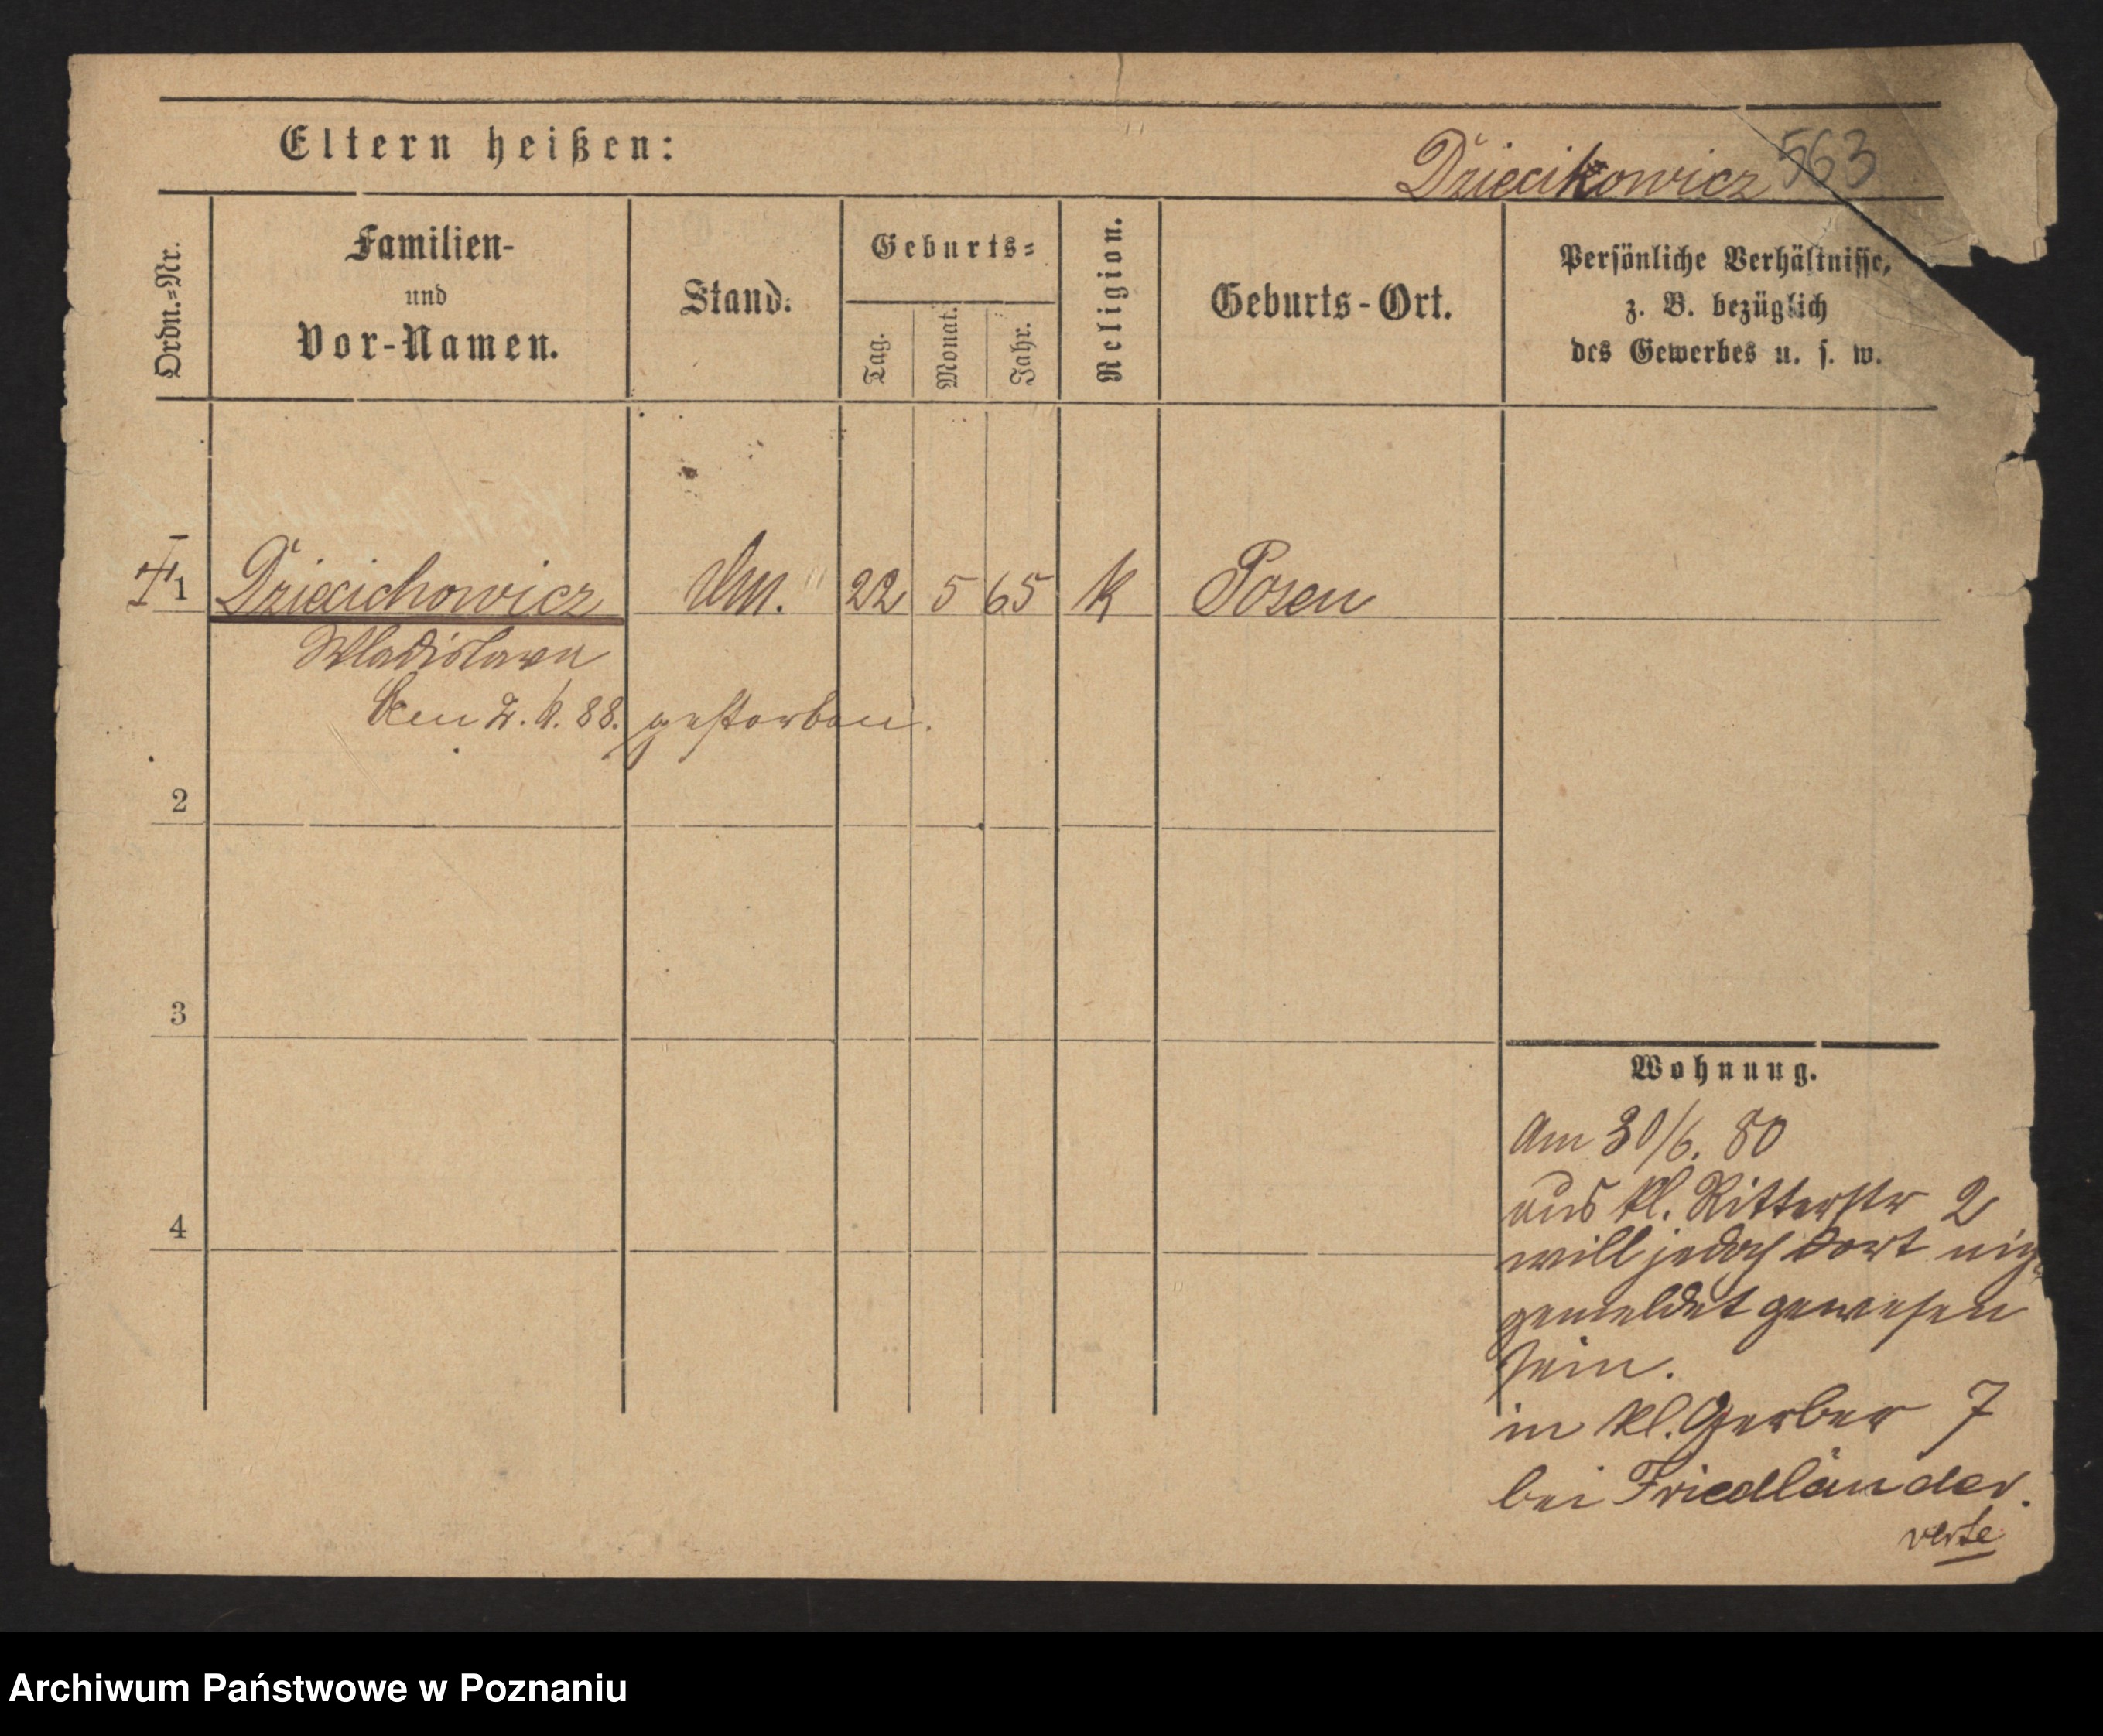 Eltern heißen:
Dziecikowicz 563
Ordn.=Nr.
Familien-
und
Vor-Namen.
Stand.
Geburts=
Tag.
Monat.
Jahr.
Religion.
Geburts-Ort.
Persönliche Verhältnisse,
z. B. bezüglich
des Gewerbes u. s. w.
1 Dziecichowicz 22 5 65 k Posen
Wladislawa
Den 2. 6. 88. gestorben.
2
3
4
Wohnung.
Am 30/6. 80
aus kl. Ritterstr 2
will jedoch dort
gemeldet gewesen
sein.
in kl. Gerber 7
bei Friedländer.
verte
Archiwum Państwowe w Poznaniu